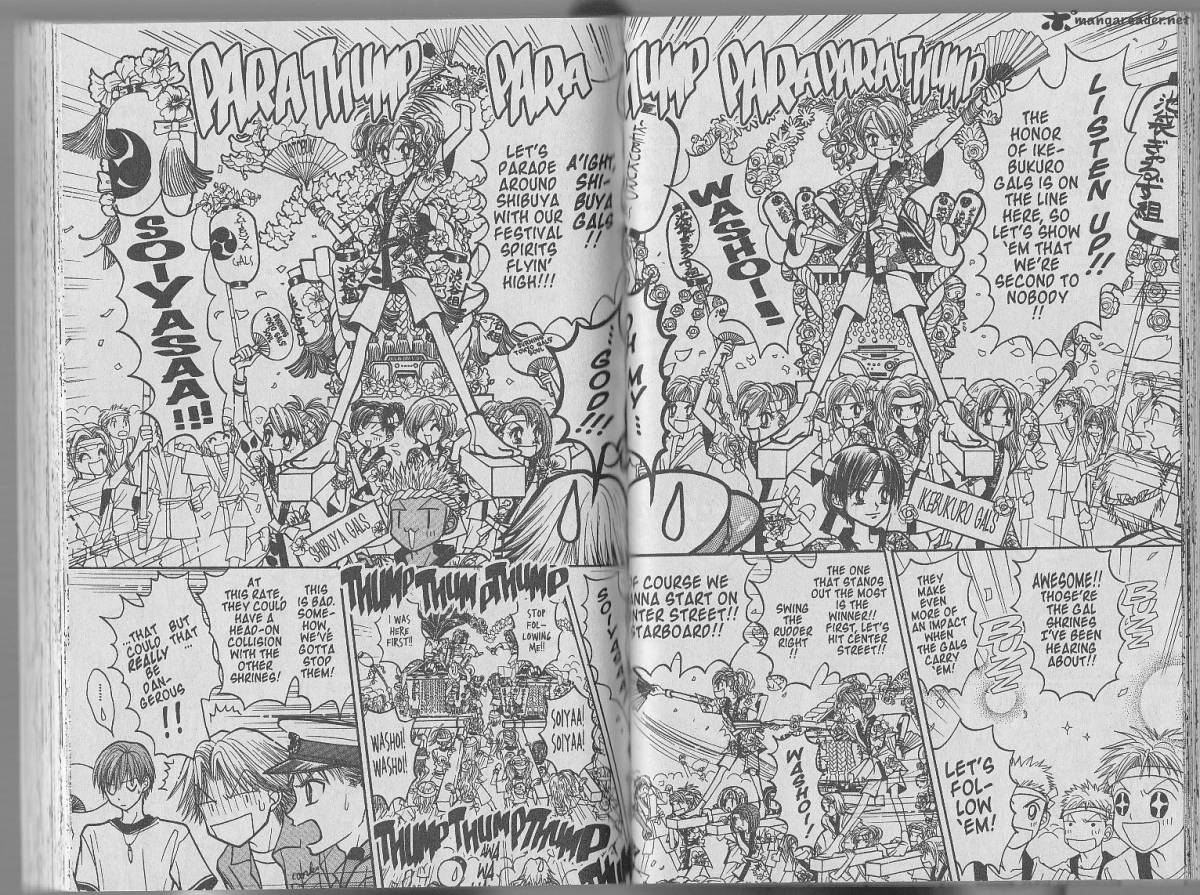 mangareader.net
PARA THUMP
PARA
THUMP
PARAPARA THUMP
LISTEN UP!!
THE
HONOR
OF IKE-
BUKURO
GALS IS ON
THE LINE
HERE, SO
LET'S SHOW
'EM THAT
WE'RE
SECOND TO
NOBODY
!!
WASHOI!!
IKEBUKURO GALS
OH MY...
...GOD!!!
A'IGHT,
SHI-
BUYA
GALS
!!
LET'S
PARADE
AROUND
SHIBUYA
WITH OUR
FESTIVAL
SPIRITS
FLYIN'
HIGH!!!
SOIYASAA!!!
GALS
SHIBUYA GALS
BUZZ
BUZZ
AWESOME!!
THOSE'RE
THE GAL
SHRINES
I'VE BEEN
HEARING
ABOUT!!
THEY
MAKE
EVEN
MORE OF
AN IMPACT
WHEN
THE GALS
CARRY
'EM!
LET'S
FOL-
LOW
'EM!
THE ONE
THAT STANDS
OUT THE MOST
IS THE
WINNER!!
FIRST, LET'S
HIT CENTER
STREET!!
SWING
THE
RUDDER
RIGHT
!!
OF COURSE WE
WANNA START ON
CENTER STREET!!
STARBOARD!!
WASHOI!!
SOIYASAA
THUMP THUMP THUMP
STOP
FOL-
LOWING
ME!!
I WAS
HERE
FIRST!!
SOIYAA!
SOIYAA!
WASHOI!
WASHOI!
THUMP THUMP THUMP
THIS
IS BAD.
SOME-
HOW,
WE'VE
GOTTA
STOP
THEM!
AT
THIS RATE,
THEY COULD
HAVE A
HEAD-ON
COLLISION
WITH THE
OTHER
SHRINES!
BUT
THAT
...THAT
COULD
REALLY
BE
DAN-
GEROUS
!!